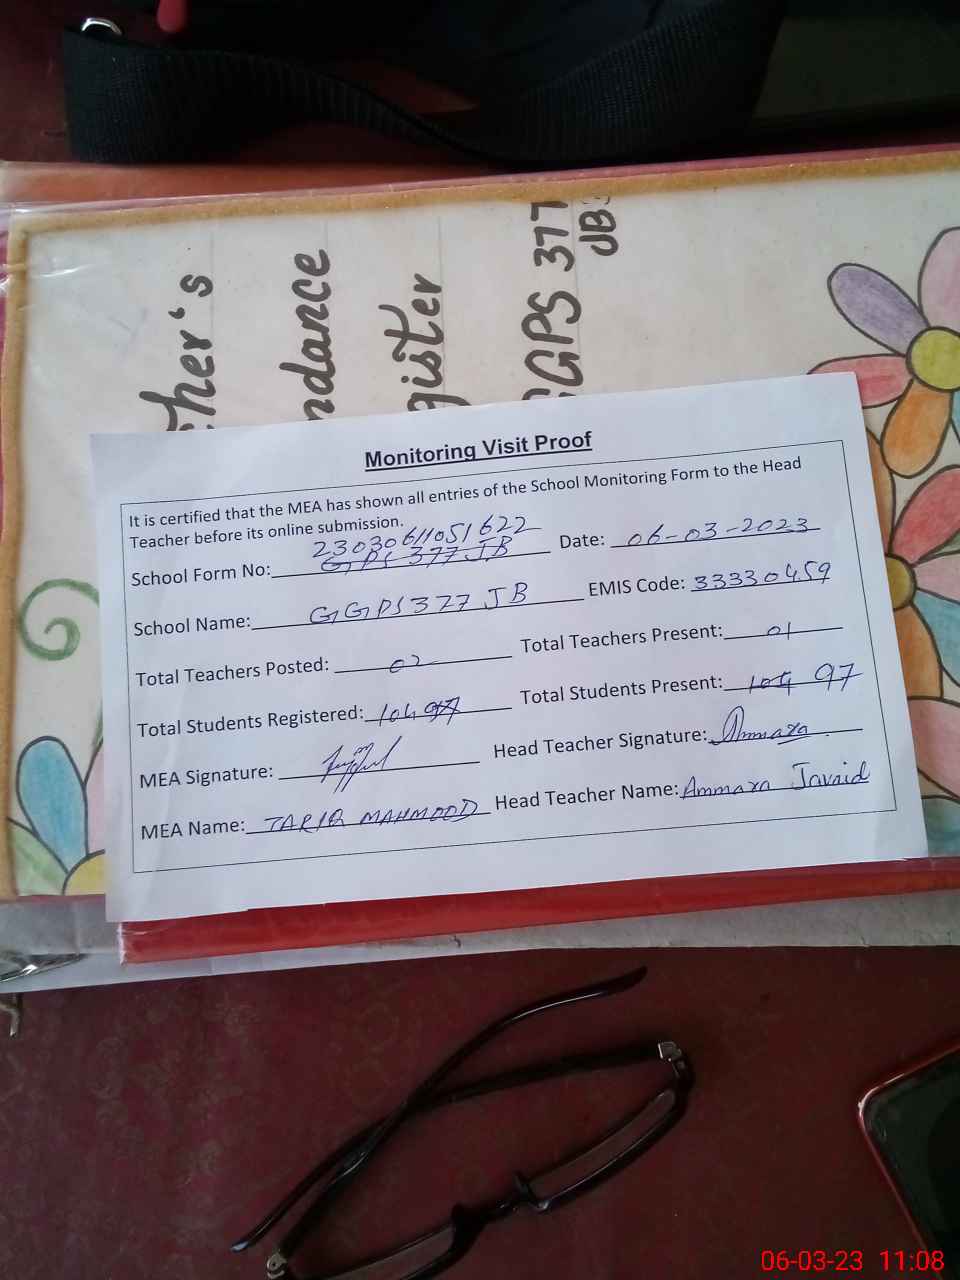 cher's
ndance
gister
GGPS 377
JB
Monitoring Visit Proof
It is certified that the MEA has shown all entries of the School Monitoring Form to the Head
Teacher before its online submission.
23030611051622
School Form No: GPS 377 JB Date: 06-03-2023
School Name: GGPS 377 JB EMIS Code: 33330459
Total Teachers Posted: 02 Total Teachers Present: 01
Total Students Registered: 104 97 Total Students Present: 104 97
MEA Signature: Head Teacher Signature: Ammara
MEA Name: TARIQ MAHMOOD Head Teacher Name: Ammara Javaid
06-03-23 11:08